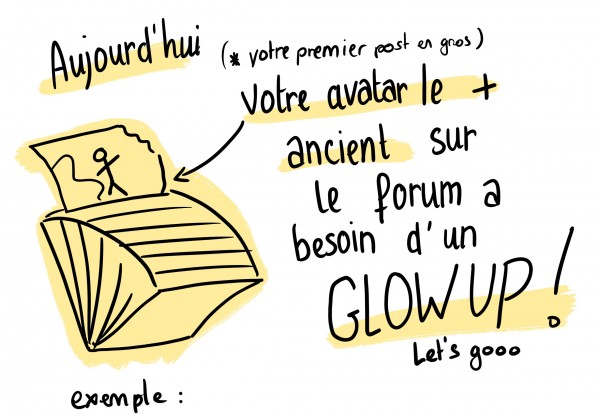 Aujourd'hui
(* votre premier post en gros)
votre avatar le +
ancient sur
le forum a
besoin d'un
GLOW UP !
Let's gooo
exemple :